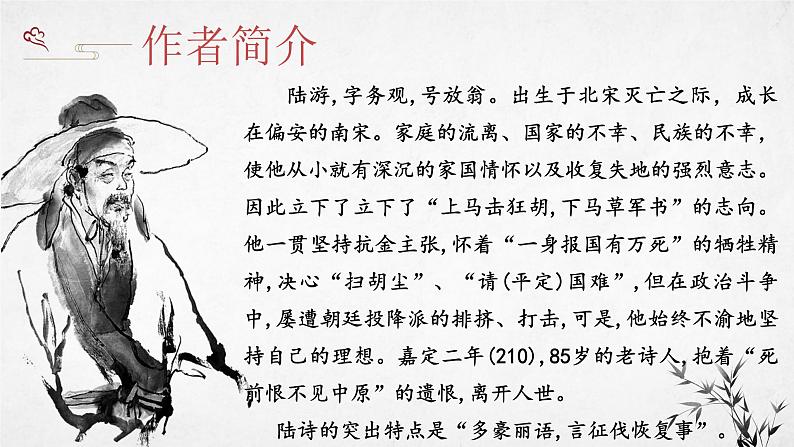 作者简介
陆游,字务观,号放翁。出生于北宋灭亡之际，成长
在偏安的南宋。家庭的流离、国家的不幸、民族的不幸，
使他从小就有深沉的家国情怀以及收复失地的强烈意志。
因此立下了立下了“上马击狂胡,下马草军书”的志向。
他一贯坚持抗金主张,怀着“一身报国有万死”的牺牲精
神,决心“扫胡尘”、“请(平定)国难”,但在政治斗争
中,屡遭朝廷投降派的排挤、打击,可是,他始终不渝地坚
持自己的理想。嘉定二年(210),85岁的老诗人,抱着“死
前恨不见中原”的遗恨,离开人世。
陆诗的突出特点是“多豪丽语,言征伐恢复事”。